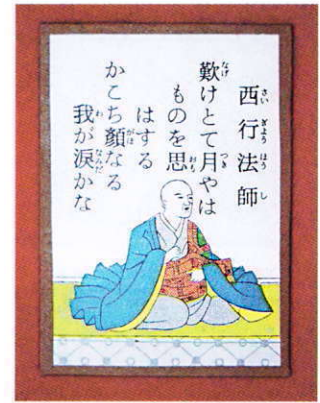 西行法師
歎けとて月やは
ものを思
はする
かこち顔なる
我が涙かな